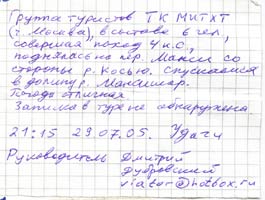 Группа туристов ТК МИТХТ
(г. Москва), в составе 6 чел,
совершая поход 4 к.с.,
поднялась на пер. Манси со
стороны р. Косью. Спускаемся
в долину р. Манашор.
Погода отличная
Записка в туре не обнаружена
21:15 29.07.05. Удачи
Руководитель Дмитрий
Дубровский
viator@hotbox.ru